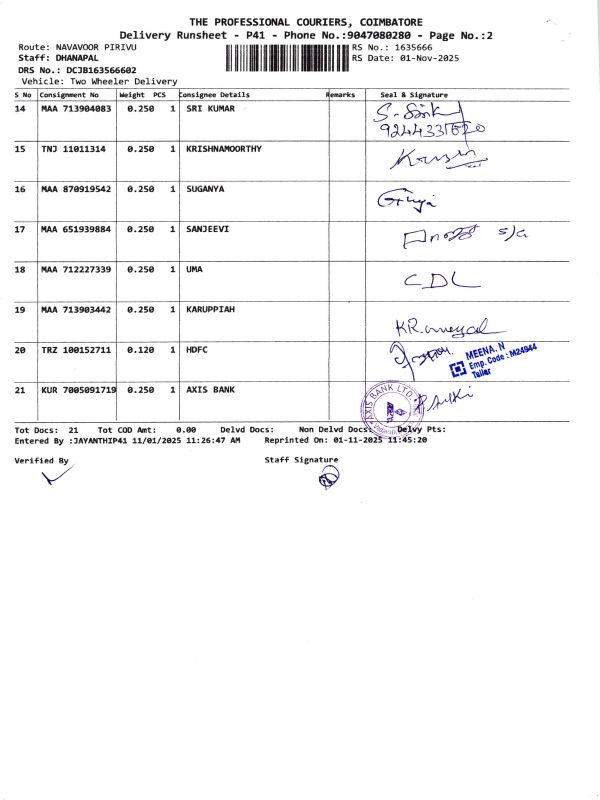 THE PROFESSIONAL COURIERS, COIMBATORE
Delivery Runsheet - P41 - Phone No.:9047080280 - Page No.:2
Route: NAVAVOOR PIRIVU RS No.: 1635666
Staff: DHANAPAL RS Date: 01-Nov-2025
DRS No.: DCJB163566602
Vehicle: Two Wheeler Delivery
S No Consignment No Weight PCS Consignee Details Remarks Seal & Signature
14 MAA 713904083 0.250 1 SRI KUMAR
15 TNJ 11011314 0.250 1 KRISHNAMOORTHY
16 MAA 870919542 0.250 1 SUGANYA
17 MAA 651939884 0.250 1 SANJEEVI s/a
18 MAA 712227339 0.250 1 UMA CDL
19 MAA 713903442 0.250 1 KARUPPIAH
20 TRZ 100152711 0.120 1 HDFC MEENA. N
Emp. Code : M24944
Teller
21 KUR 7005091719 0.250 1 AXIS BANK AXIS BANK LTD.
Tot Docs: 21 Tot COD Amt: 0.00 Delvd Docs: Non Delvd Docs: Delvy Pts:
Entered By :JAYANTHIP41 11/01/2025 11:26:47 AM Reprinted On: 01-11-2025 11:45:20
Verified By Staff Signature